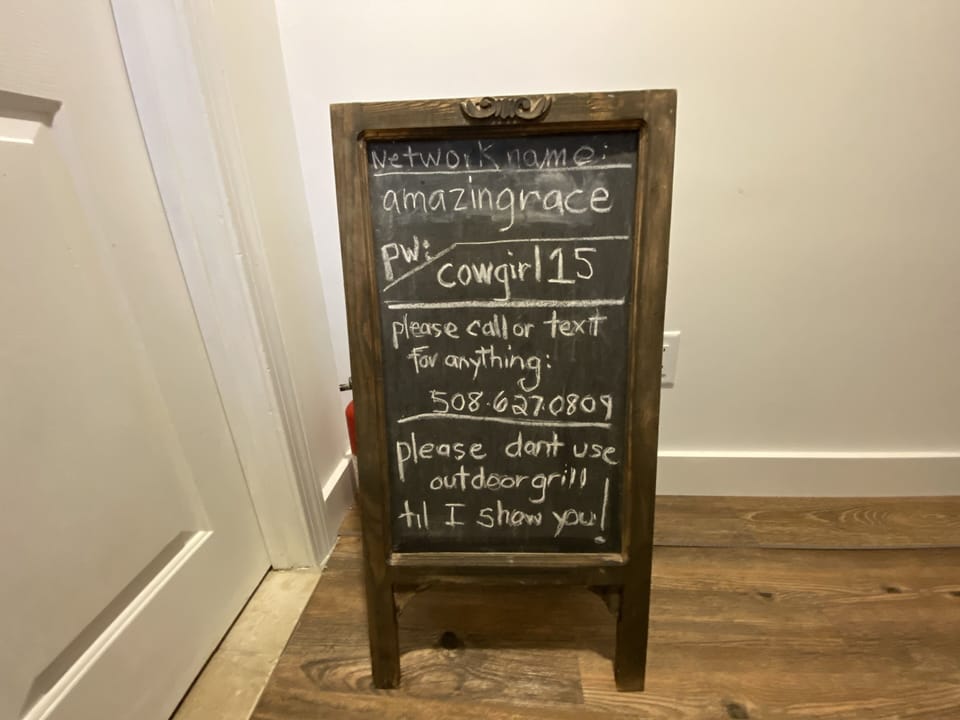 Network name:
amazingrace
pw:
cowgirl15
please call or text
for anything:
508.627.0809
please dont use
outdoor grill
til I show you!